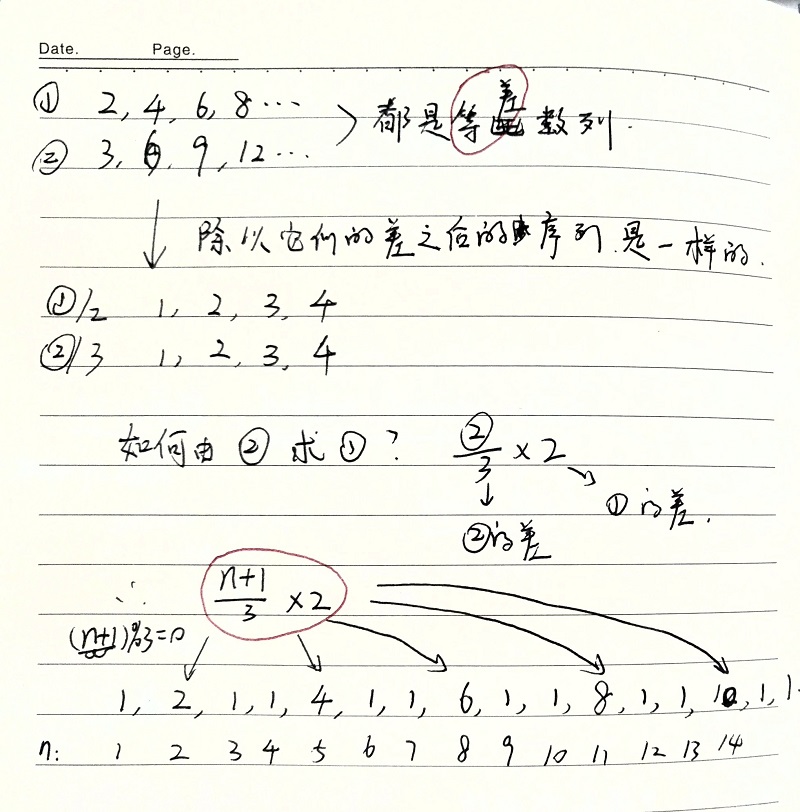 Date. Page.
① 2, 4, 6, 8 ...
② 3, 6, 9, 12 ...
都是等差数列.
除以它们的差之后的序列是一样的.
①/2 1, 2, 3, 4
②/3 1, 2, 3, 4
如何由②求①? ②/3 × 2
①的差.
②的差
∴ (n+1)/3 × 2
(n+1)%3=0
1, 2, 1, 1, 4, 1, 1, 6, 1, 1, 8, 1, 1, 10, 1, 1.
n: 1 2 3 4 5 6 7 8 9 10 11 12 13 14